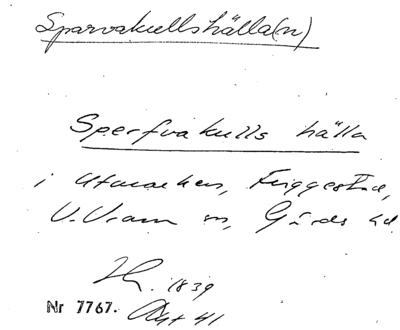 Sparvakullshälla(n)
Sperfvakulls hälla
i Utmarken, Friggestad,
V. Vram sn, Gärds hd
1839
Nr 7767. Akt 41